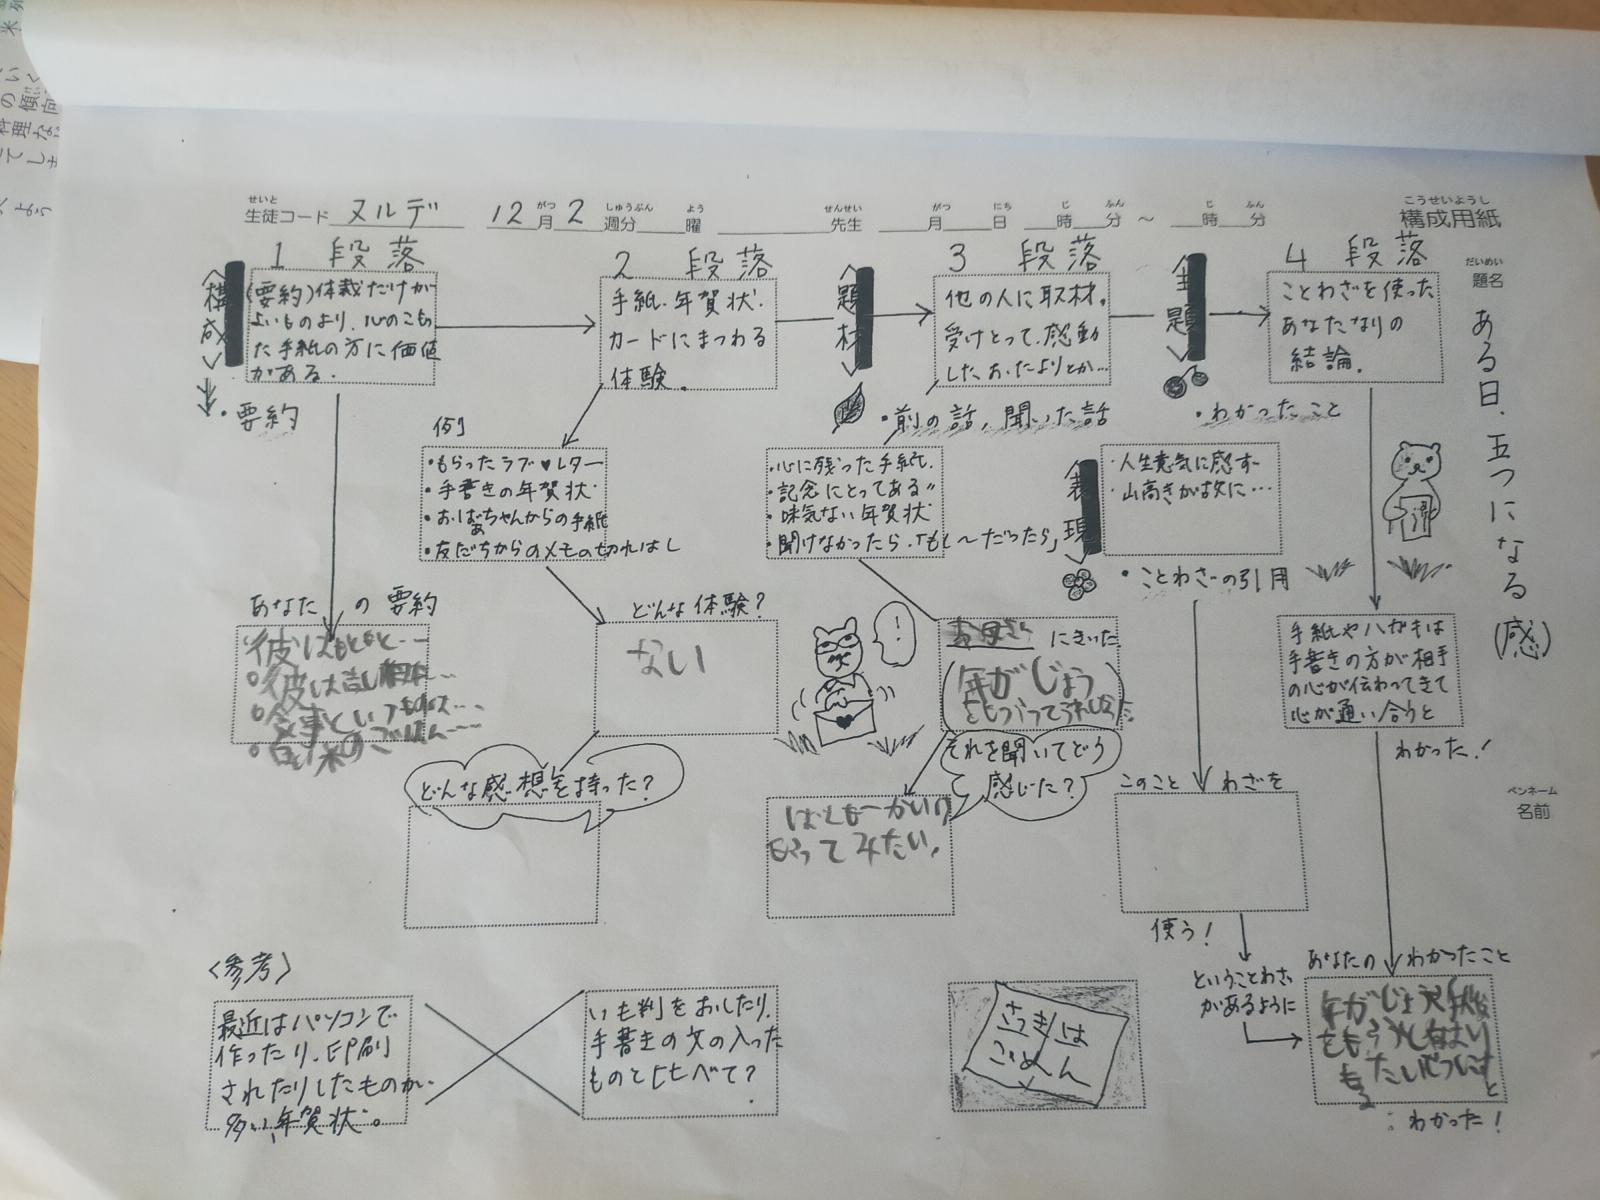 せいと
生徒コード ヌルデ 12月2週分 曜 先生 月 日 時 分 ～ 時 分
がつ しゅうぶん よう せんせい がつ にち じ ふん じ ふん
こうせいようし
構成用紙
だいめい
題名
ある日、五つになる(感)
ペンネーム
名前
1 段落
〈構成〉
(要約)体裁だけが
よいものより、心のこもっ
た手紙の方に価値
がある。
・要約
2 段落
手紙・年賀状・
カードにまつわる
体験。
〈題材〉
3 段落
他の人に取材。
受けとって、感動
した、おたよりとか…
・前の話,聞いた話
〈主題〉
・わかったこと
4 段落
ことわざを使った
あなたなりの
結論。
例
・もらったラブ♥レター
・手書きの年賀状
・おばあちゃんからの手紙
・友だちからのメモの切れはし
・心に残った手紙
・記念にとってある〃
・味気ない年賀状
・聞けなかったら、「もし〜だったら」
〈表現〉
・人生意気に感ず
・山高きが故に…
・ことわざの引用
あなたの要約
彼はもともと…
食事というものは…
白い米のごはん…
どんな体験?
ない
どんな感想を持った?
!
お母さんにきいた
年がじょう
それを聞いてどう
感じた?
やってみたい,
このことわざを
使う!
ということわざ
があるように
手紙やハガキは
手書きの方が相手
の心が伝わってきて
心が通い合うと
わかった!
あなたのわかったこと
年がじょう
と
わかった!
〈参考〉
最近はパソコンで
作ったり、印刷
されたりしたものが
多い、年賀状。
いも判をおしたり、
手書きの文の入った
ものとヒヒべて?
さっきは
ごめん
の傾向
料理な
てしま
よう